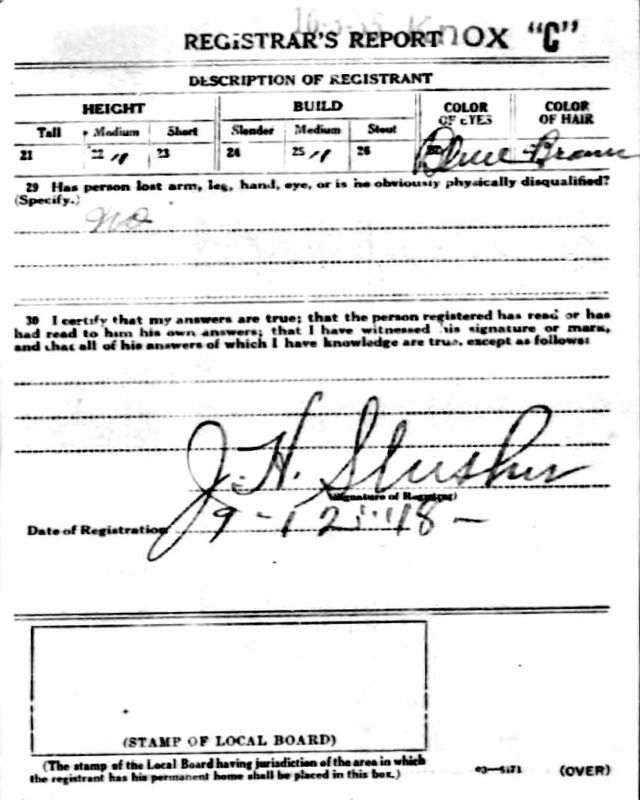 Knox "C"
REGISTRAR'S REPORT
DESCRIPTION OF REGISTRANT
HEIGHT BUILD COLOR OF EYES COLOR OF HAIR
Tall Medium Short Slender Medium Stout
21 22 " 23 24 25 " 26 Blue Brown
29 Has person lost arm, leg, hand, eye, or is he obviously physically disqualified?
(Specify.)
No
30 I certify that my answers are true; that the person registered has read or has
had read to him his own answers; that I have witnessed his signature or mark,
and that all of his answers of which I have knowledge are true, except as follows:
J. H. Slusher
(Signature of Registrar)
Date of Registration 9-12-18-
(STAMP OF LOCAL BOARD)
(The stamp of the Local Board having jurisdiction of the area in which
the registrant has his permanent home shall be placed in this box.)
03—6171 (OVER)